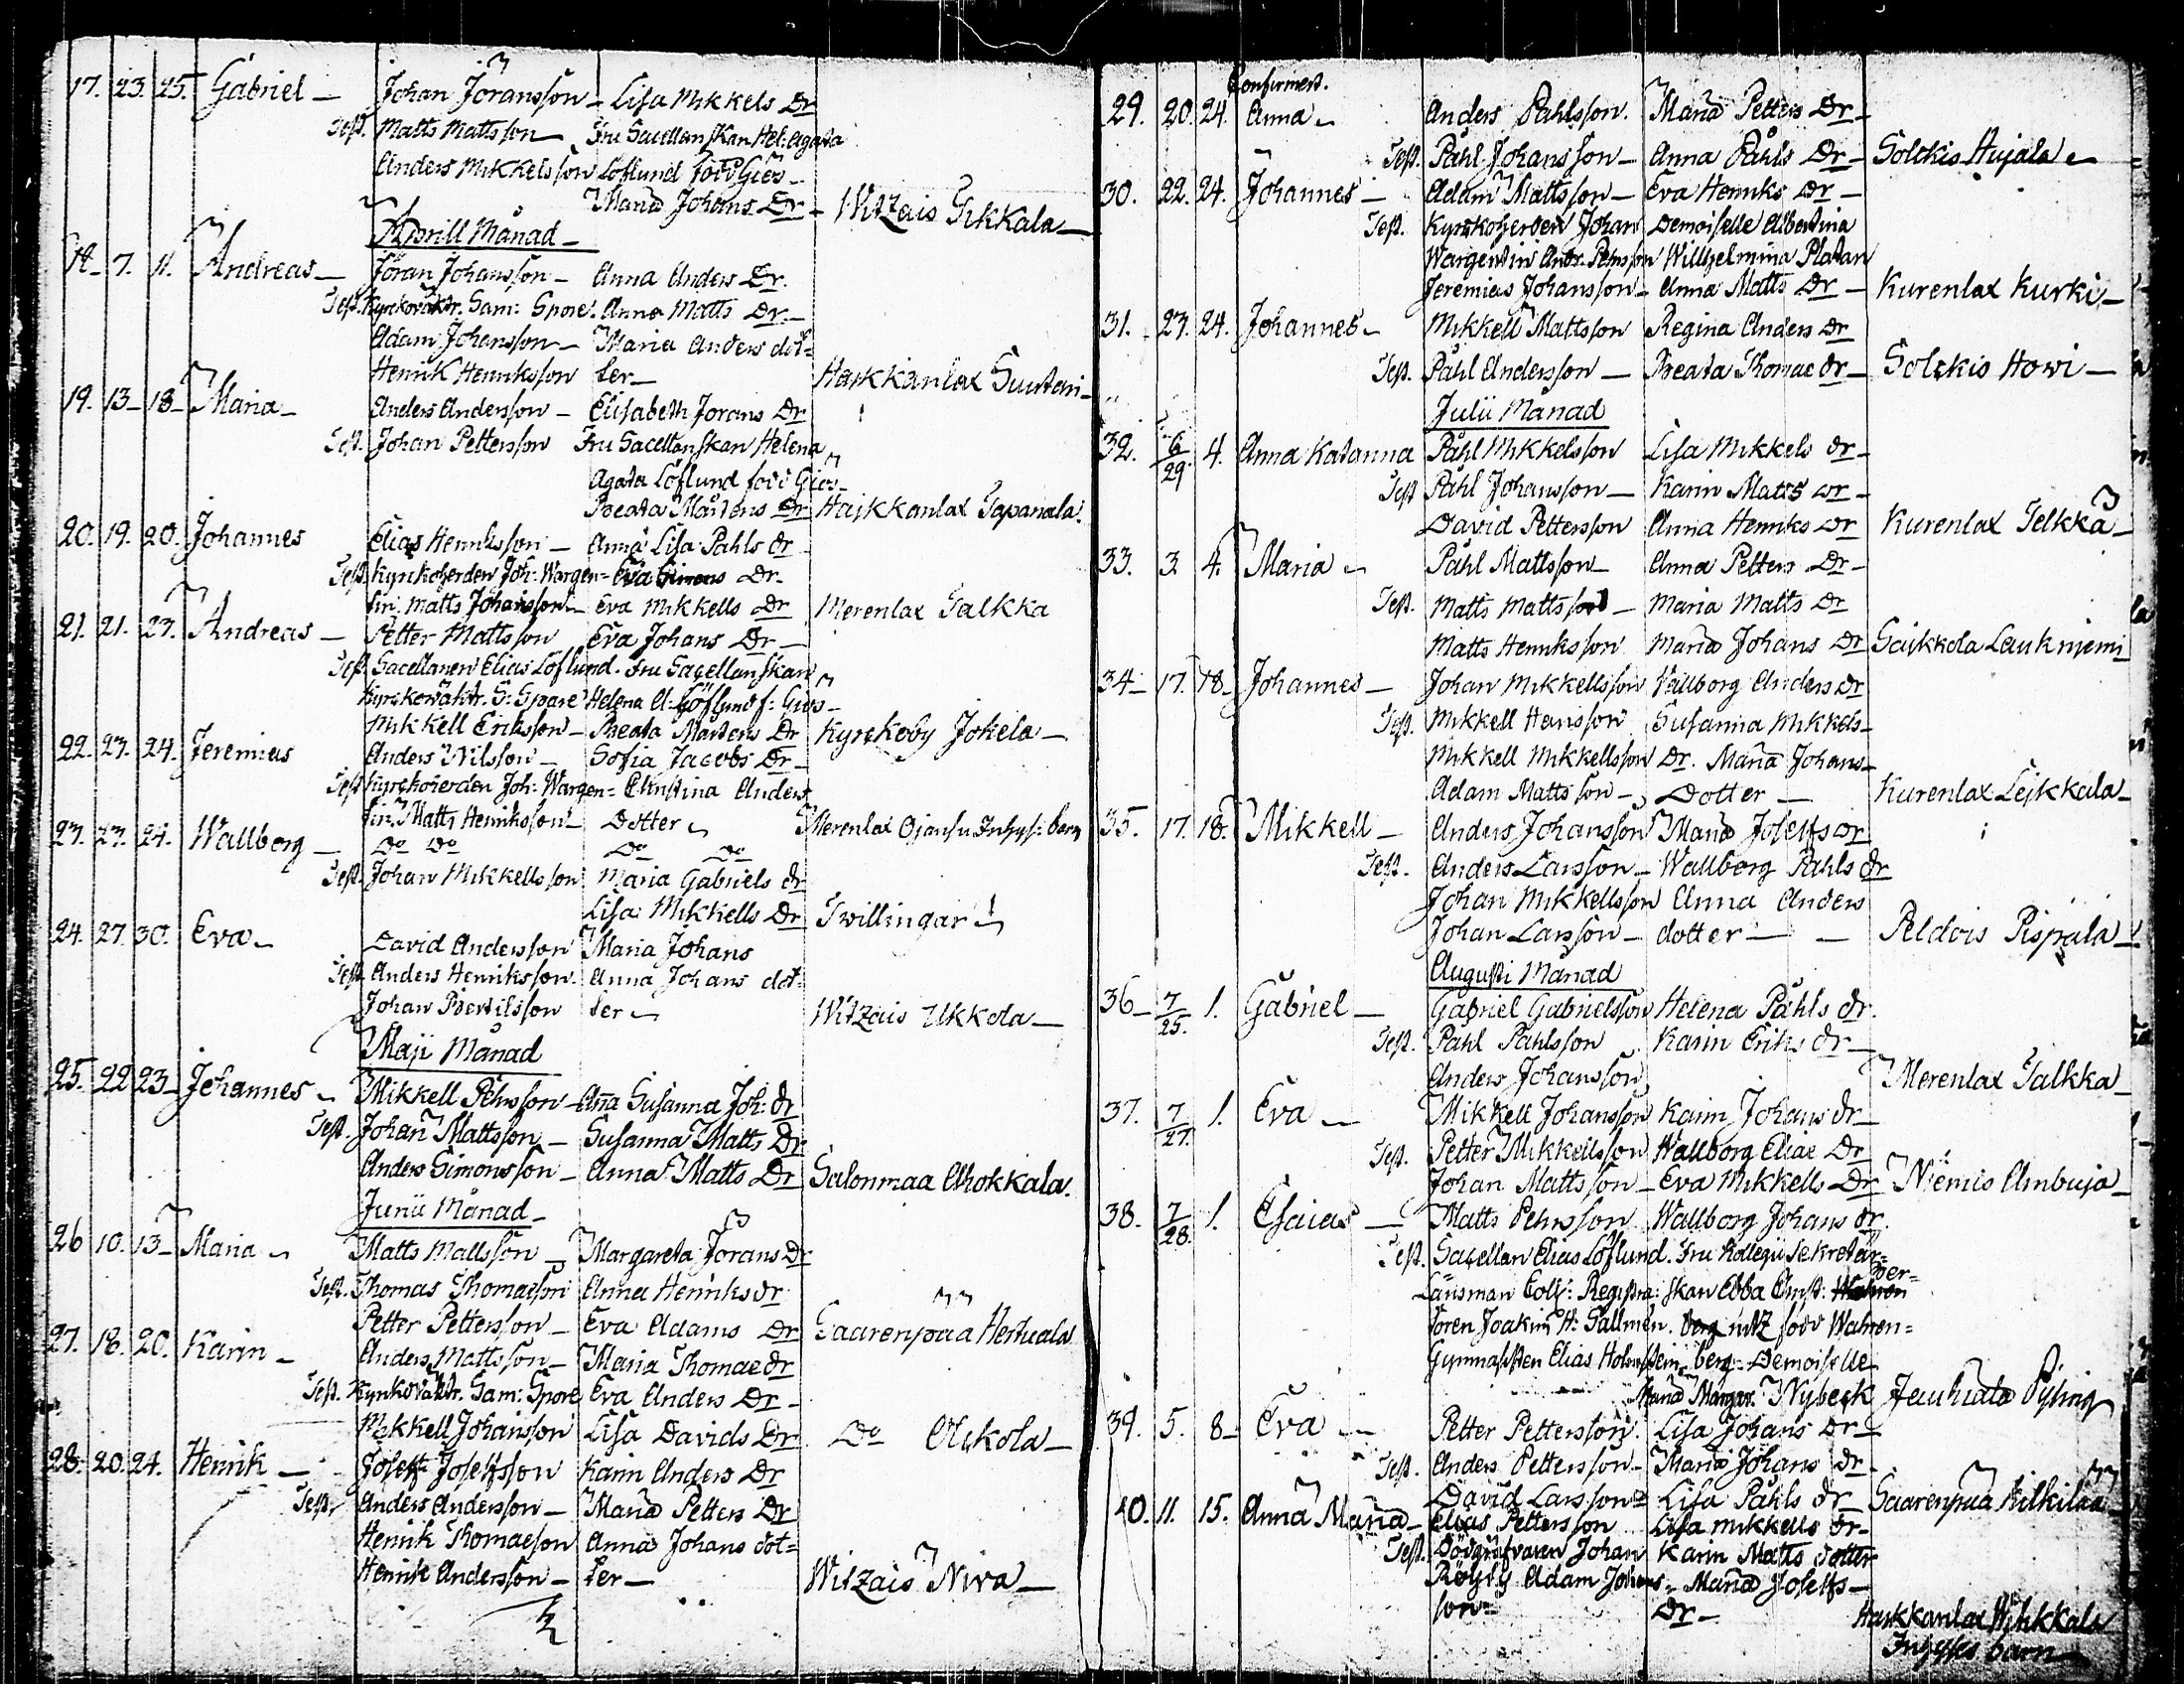 17. 23. 25. Gabriel - Johan Jöransson - Lisa Mikkels Dr
Test. Matts Mattsson - Fru Sacellanskan Hel: Agata
Anders Mikkelsson Löflund född Giös -
Maria Johans Dr - Witzais Yrkkala -
Aprill Månad -
18 - 7. 11. Andreas - Jöran Johansson - Anna Anders Dr.
Test. Kyrkovakt. Sam: Spore. Anna Matts Dr. -
Adam Johansson - Maria Anders dot=
Henrik Henriksson ter - Haikkanlax Suutari -
19. 13 - 18 - Maria - Anders Andersson - Elisabeth Jörans Dr
Test. Johan Pettersson Fru Sacellanskan Helena
Agata Löflund född Giös -
Beata Mårtens Dr Hajkkanlax Tapanala.
20. 19. 20. Johannes Elias Henriksson - Anna Lisa Påhls dr
Test. Kyrkoherden Joh: Wargen= Eva Simons Dr -
tin. Matts Johansson - Eva Mikkells Dr Merenlax Talkka
21. 21. 27. Andreas - Petter Mattsson Eva Johans Dr -
Test. Sacellanen Elias Löflund. Fru Sacellanskan
Kyrkovakt. S: Spåre Helena A: Löflund f: Giös -
Mikkell Eriksson - Beata Mårtens Dr Kyrkoby Jokela -
22. 23. 24. Jeremias Anders Nilsson - Sofia Jacobs Dr -
Test Kyrkoherden Joh: Wargen= Christina Anders
tin. Matts Henriksson - Dotter Merenlax Ojansu Inhys: barn
23. 23. 24. Wallborg - Do Do Do Do
Test. Johan Mikkellsson Maria Gabriels dr
Lisa Mikkells Dr Twillingar!
24. 27. 30. Eva - David Andersson Maria Johans
Test. Anders Henriksson - Anna Johans dot=
Johan Bertilsson ter - Witzais Ukkola -
Maji Månad
25. 22 23 - Johannes - Mikkell Pehrsson - Aña Susanna Joh: dr
Test. Johan Mattsson - Susanna Matts Dr
Anders Simonsson - Anna Matts Dr Salonmaa Ahokkala.
Junii Månad -
26 10. 13 - Maria - Matts Mattsson - Margareta Jörans Dr
Test. Thomas Thomasson Anna Henriks dr
Petter Pettersson - Eva Adams Dr Saarenpää Hertuala
27. 18. 20. Karin - Anders Mattsson - Maria Thomae dr
Test. Kyrkovakt. Sam: Spore Eva Anders Dr -
Mikkell Johansson Lisa Davids Dr Do Olikola -
28. 20. 24. Henrik - Joseff Joseffsson Karin Anders Dr
Test. Anders Andersson - Maria Petters Dr
Henrik Thomaeson Anna Johans dot=
Henrik Andersson - ter - Witzais Niva -
Confirmerd.
29. 20. 24. Anna - Anders Påhlsson. Maria Petters Dr -
Test. Påhl Johansson - Anna Påhls Dr - Solckis Hujala -
30. 22. 24. Johannes - Adam Mattsson - Eva Henriks Dr -
Test. Kyrkoherden Johan Demoiselle Albertina
Wargentin Andr. Pehrsson Willhelmina Platan
Jeremias Johansson - Anna Matts Dr - Kurenlax Kurki -
31. 23. 24. Johannes - Mikkell Mattsson Regina Anders Dr
Test. Påhl Andersson - Beata Thomae Dr - Solckis Howi -
Julii Månad
32. 6/29. 4. Anna Katarina Påhl Mikkelsson Lisa Mikkels dr -
Test Påhl Johansson - Karin Matts Dr -
David Pettersson Anna Henriks Dr Kurenlax Telkkä -
33. 3 4. Maria - Påhl Mattsson - Anna Petters Dr -
Test. Matts Mattsson - Maria Matts Dr
Matts Henriksson Maria Johans Dr Saikkola Laukniemi
34 - 17. 18 - Johannes - Johan Mikkellsson Wallborg Anders Dr
Test. Mikkell Hansson Susanna Mikkels -
Mikkell Mikkellsson Dr. Maria Johans -
Adam Mattsson - Dotter - Kurenlax Lejkkala -
35. 17. 18. Mikkell - Anders Johansson Maria Joseffs Dr
Test. Anders Larsson - Wallborg Påhls dr
Johan Mikkellsson Anna Anders
Johan Larsson - dotter - - Peldois Pispala -
Augusti Månad
36 - 7/25. 1. Gabriel - Gabriel Gabrielsson Helena Påhls dr.
Test. Påhl Påhlsson Karin Eriks dr -
Anders Johansson Merenlax Talkka
37. 7/27. 1. Eva - Mikkell Johansson Karin Johans dr -
Test. Petter Mikkellsson Wallborg Eliae Dr
Johan Mattsson - Eva Mikkells Dr Niemis Ambuja -
38. 7/28. 1. Esaias - Matts Pehrsson Wallborg Johans dr.
Test. Sacellan Elias Löflund. Fru Kollegii Sekretär=
Länsman Coll: Registra: skan Ebba Christ:
toren Joakim H: Tallmén. född Wahren=
Gymnasisten Elias Holmstein. berg - Demoiselle
Maria Margar. Nybeck Jauhiala Pysing
39. 5. 8 - Eva - Petter Pettersson. Lisa Johans Dr -
Test. Anders Pettersson - Maria Johans dr -
David Larsson Lisa Påhls dr - Saarenpää Kilkilää
40. 11. 15. Anna Maria - Elias Pettersson Lisa Mikkells dr -
Test. Dödgräfvaren Johan Karin Matts dotter
Adam Johans= Maria Joseffs -
son - Dr -
Haikkanlax Wihkkala
Inhyses barn